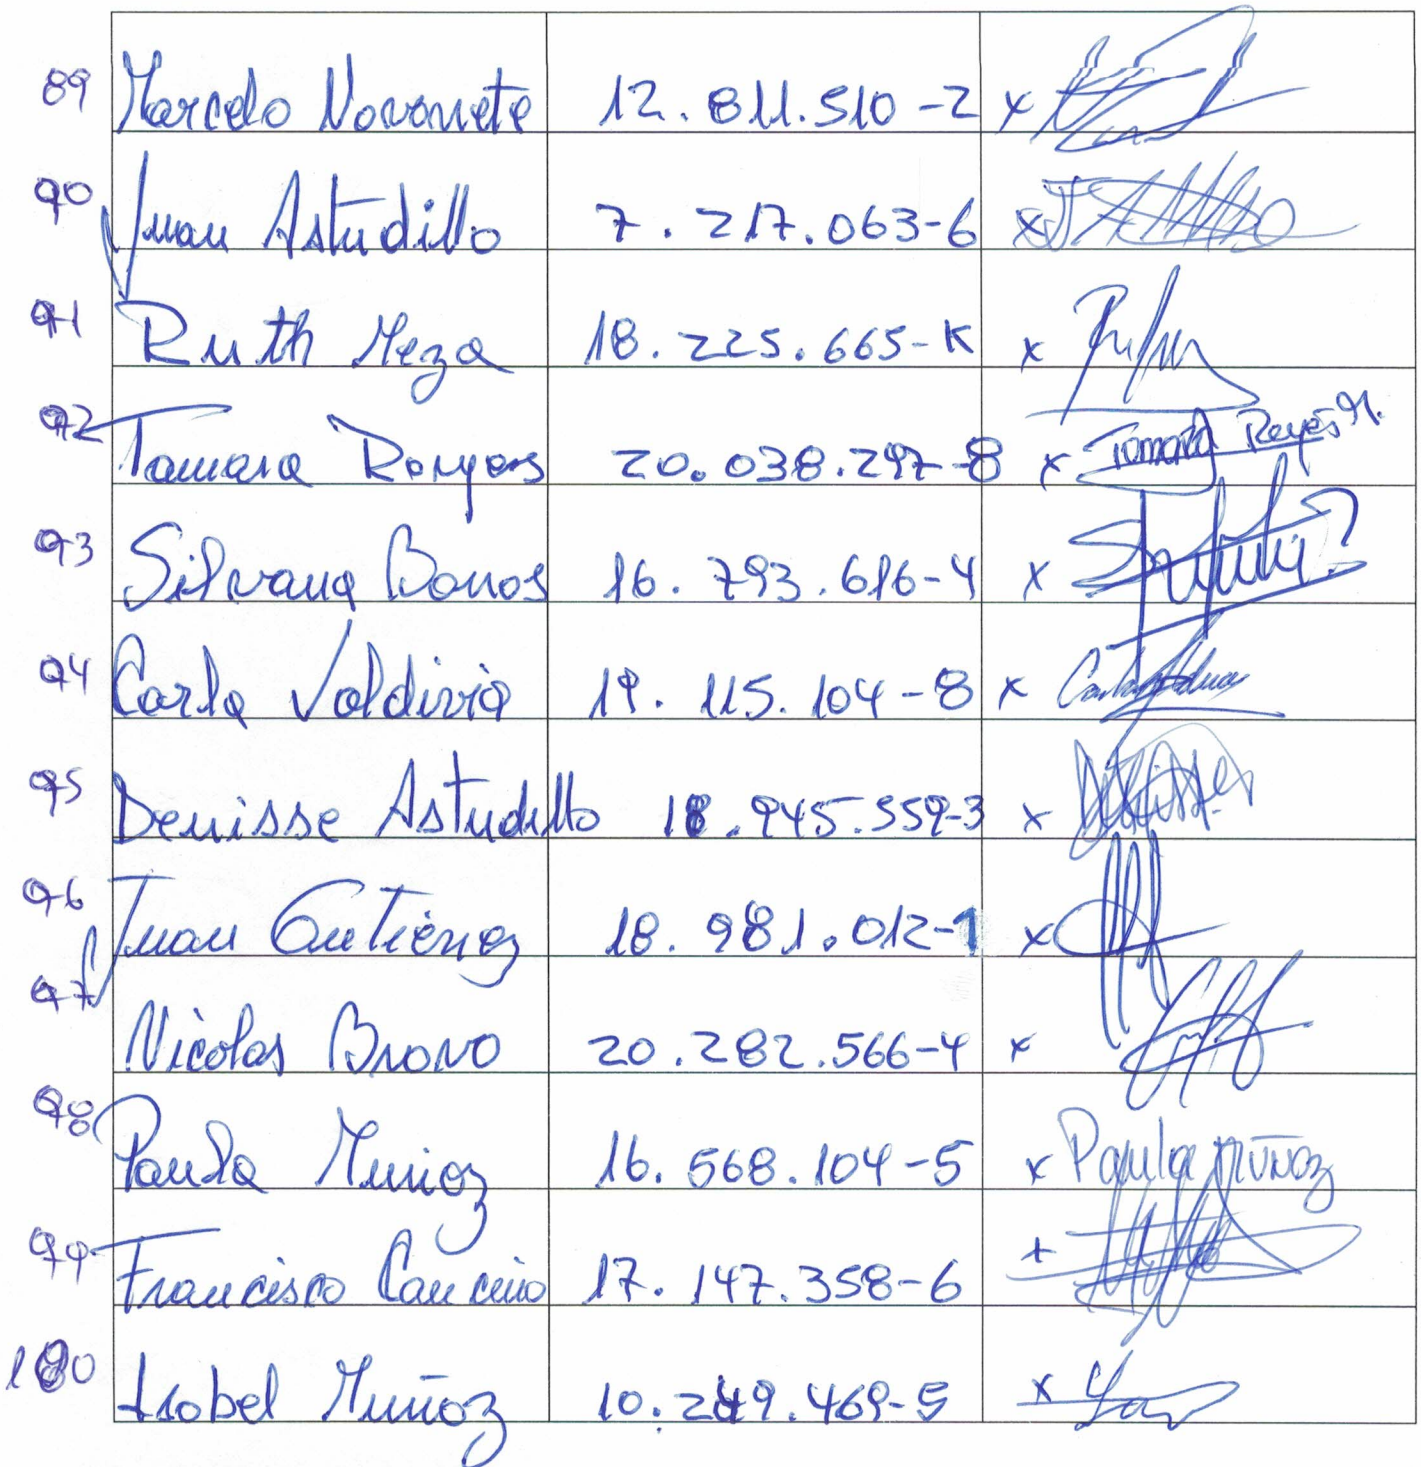 89 Marcelo Navarrete 12.811.510-2 x
90 Juan Astudillo 7.217.063-6 x
91 Ruth Meza 18.225.665-K x
92 Tamara Reyes 20.038.297-8 x Tamara Reyes M.
93 Silvana Barros 16.793.616-4 x
94 Carla Valdivia 19.115.104-8 x
95 Denisse Astudillo 18.945.559-3 x
96 Juan Gutiérrez 18.981.012-1 x
97 Nicolas Bravo 20.282.566-4 x
98 Paula Munioz 16.568.104-5 x Paula Muñoz
99 Francisco Cancino 17.147.358-6 x
100 Isabel Muñoz 10.249.469-5 x